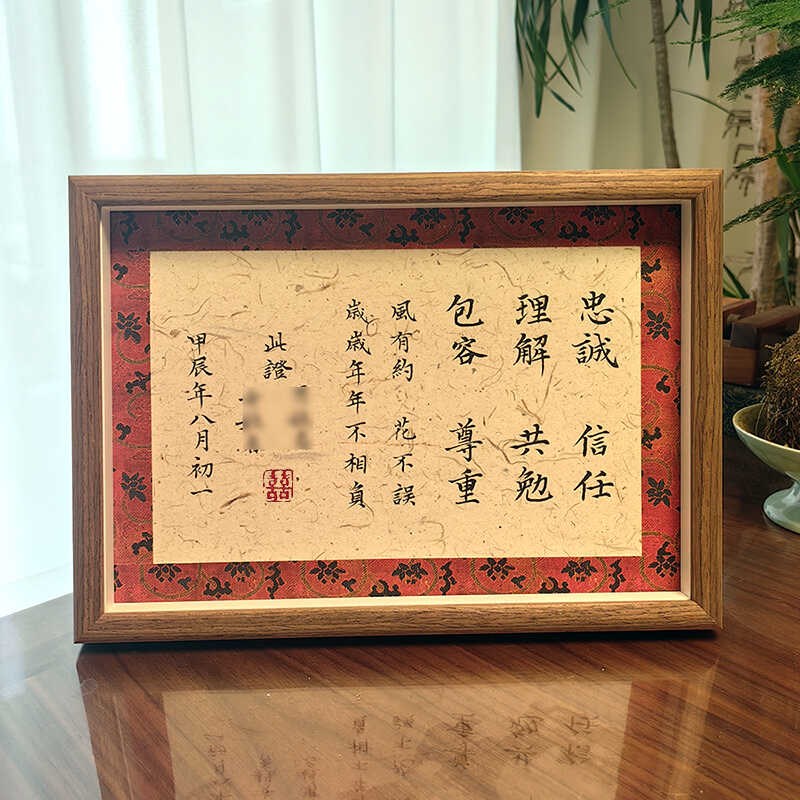 忠誠 信任
理解 共勉
包容 尊重
風有約 花不誤
歲歲年年不相負
此證
囍
甲辰年八月初一